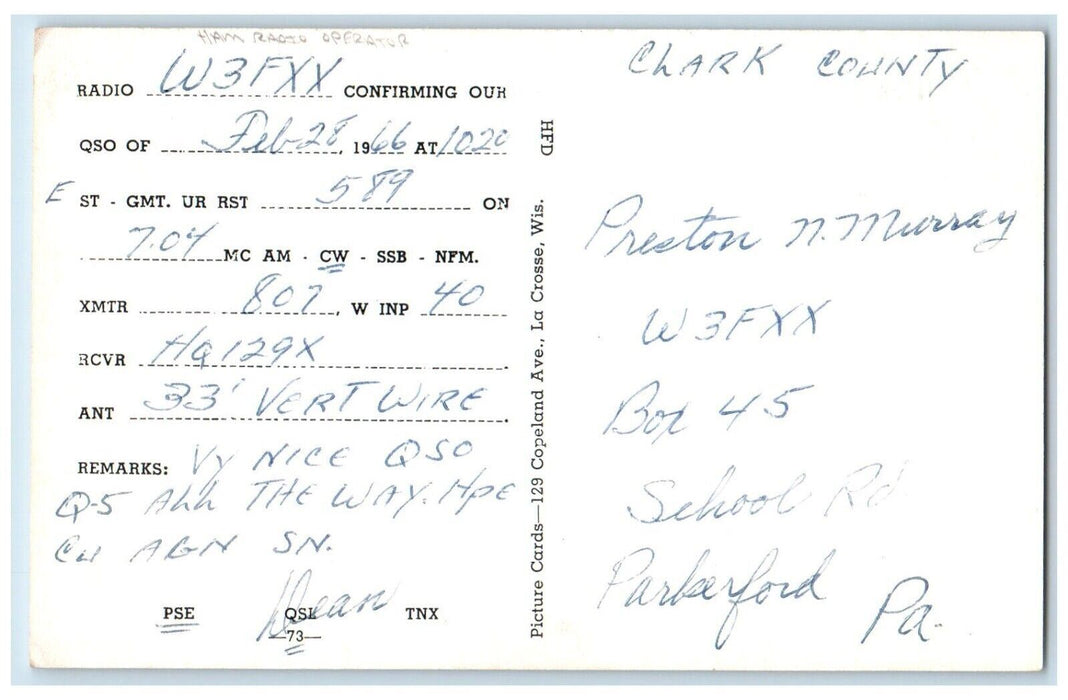 HAM RADIO OPERATOR
RADIO W3FXX CONFIRMING OUR
QSO OF Feb-28, 1966 AT 1020
EST - GMT. UR RST 589 ON
7.04 MC AM - CW - SSB - NFM.
XMTR 807, W INP 40
RCVR HQ129X.
ANT 33' VERT WIRE.
REMARKS: VY NICE QSO
Q-5 ALL THE WAY. HPE
CU AGN SN.
Dean
PSE QSL TNX
—73—
HFD
Picture Cards—129 Copeland Ave., La Crosse, Wis.
CLARK COUNTY
Preston N. Murray
W3FXX
Box 45
School Rd
Parkerford
Pa.